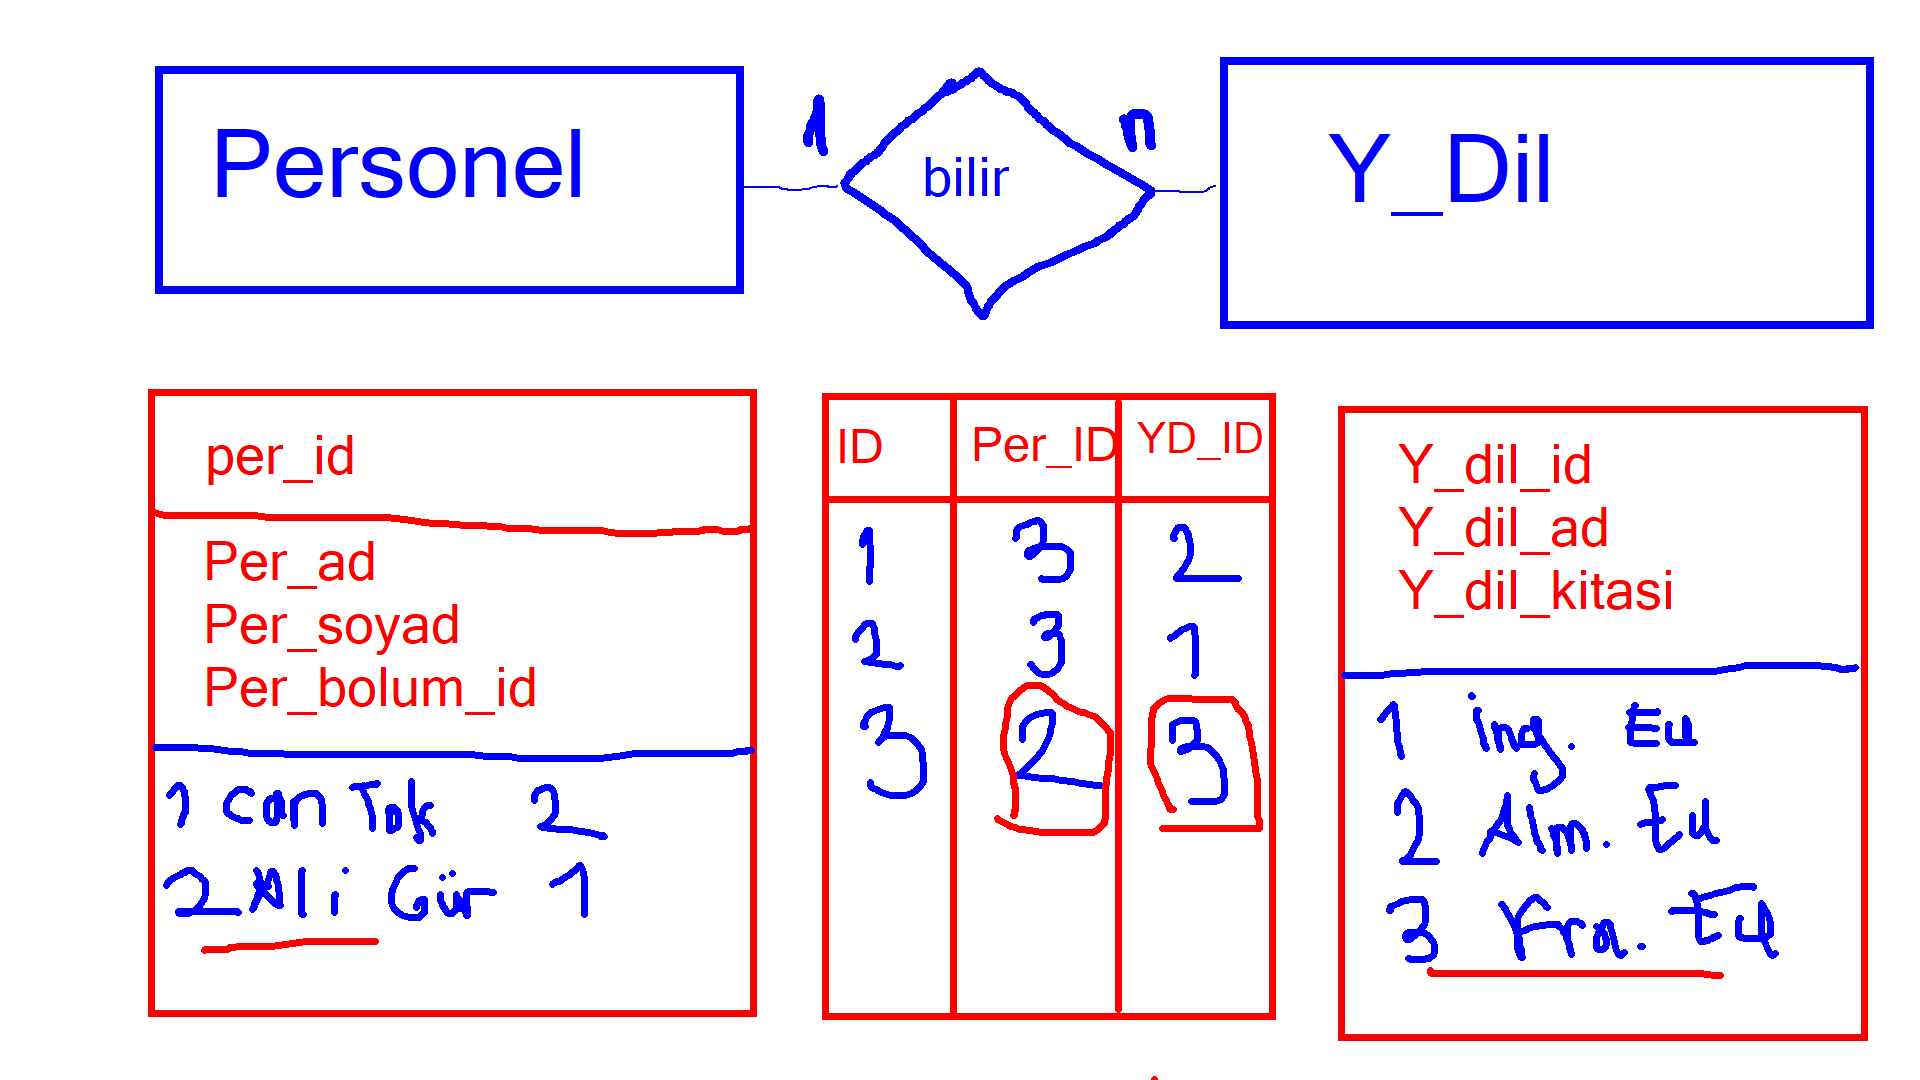 Personel
1
bilir
n
Y_Dil
per_id
Per_ad
Per_soyad
Per_bolum_id
1 Can Tok 2
2 Ali Gür 1
ID Per_ID YD_ID
1 3 2
2 3 1
3 2 3
Y_dil_id
Y_dil_ad
Y_dil_kitasi
1 ing. Eu
2 Alm. Eu
3 Fra. Eu